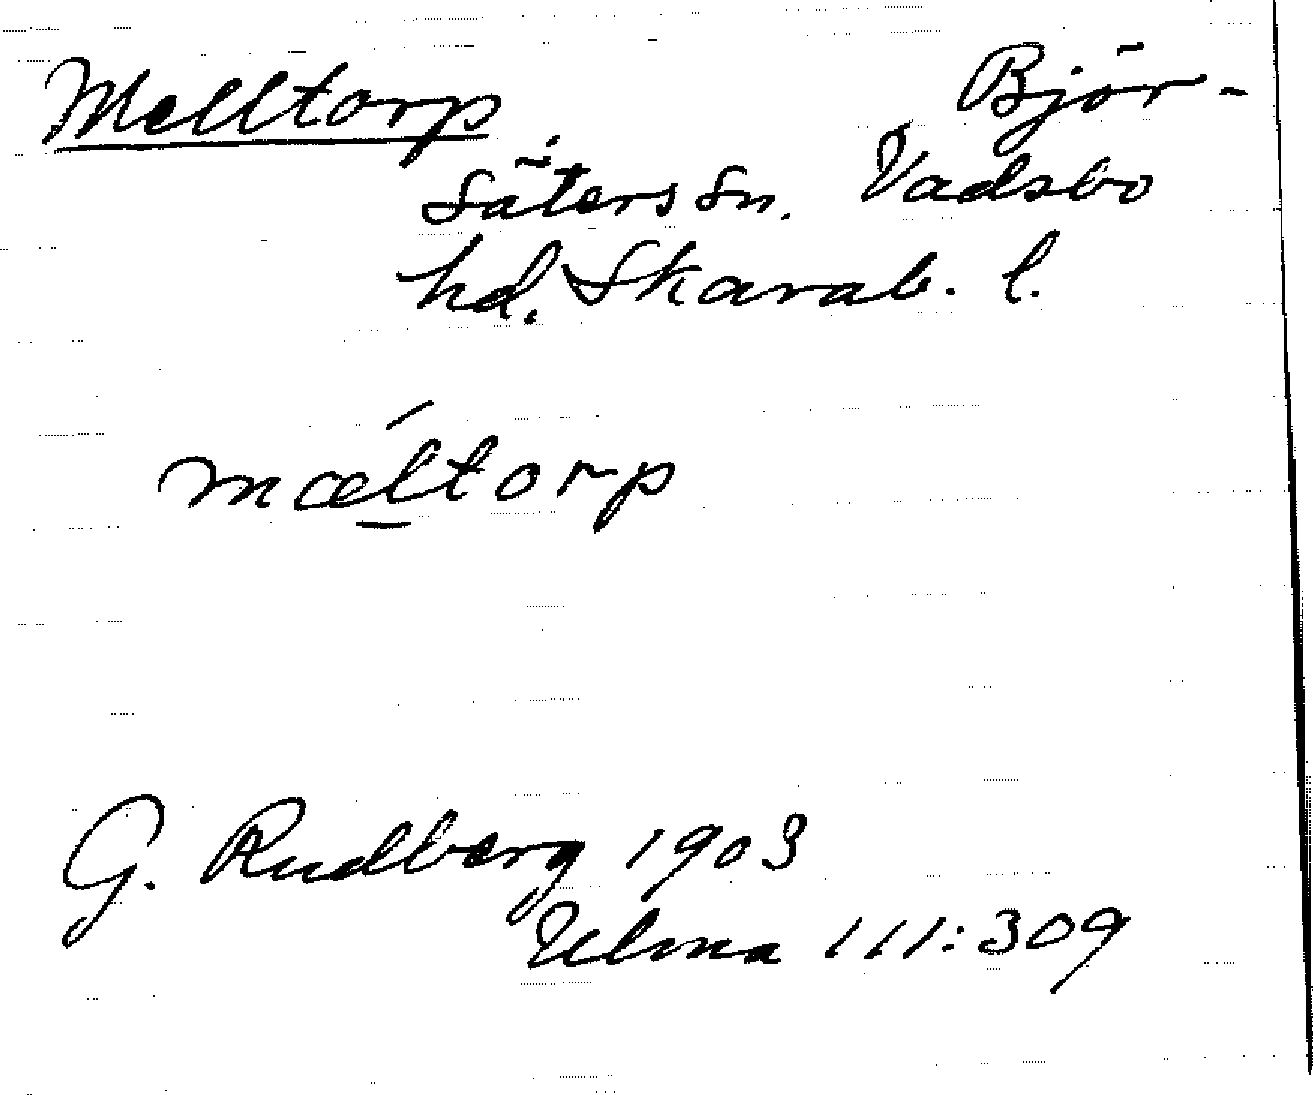 Melltorp Björ-
säters sn. Vadsbo
hd. Skarab. l.
mæ̱ĺtorp
G. Rudberg 1903
Ulma 111:309